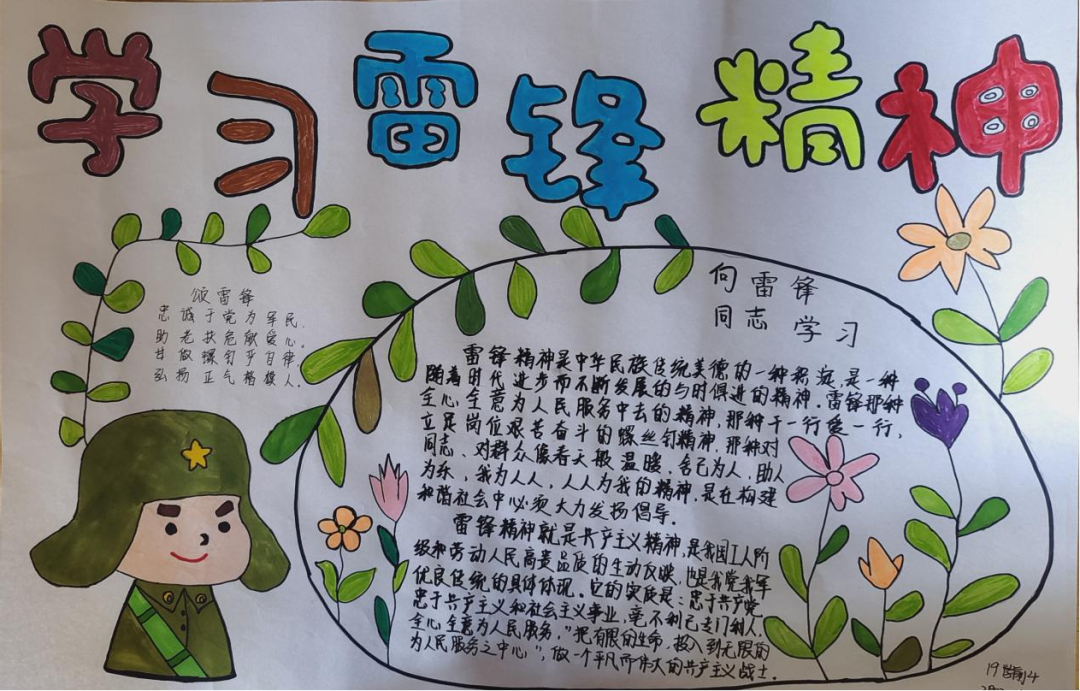 学习雷锋精神
颂雷锋
忠诚于党为军民.
助老扶危献爱心.
甘做螺钉守自律
弘扬正气楷模人.
向雷锋
同志学习
雷锋精神是中华民族传统美德的一种积淀,是一种
随着时代进步而不断发展的与时俱进的精神.雷锋那种
全心全意为人民服务中去的精神,那种干一行爱一行,
立足岗位艰苦奋斗的螺丝钉精神,那种对
同志、对群众像春天般温暖,舍己为人,助人
为乐,我为人人,人人为我的精神,是在构建
和谐社会中必须大力发扬倡导.
雷锋精神就是共产主义精神,是我国工人阶
级和劳动人民高贵品质的生动反映,也是我党我军
优良传统的具体体现.它的实质是:忠于共产党
忠于共产主义和社会主义事业,毫不利己专门利人,
全心全意为人民服务,"把有限的生命,投入到无限的
为人民服务之中心",做一个平凡而伟大的共产主义战士.